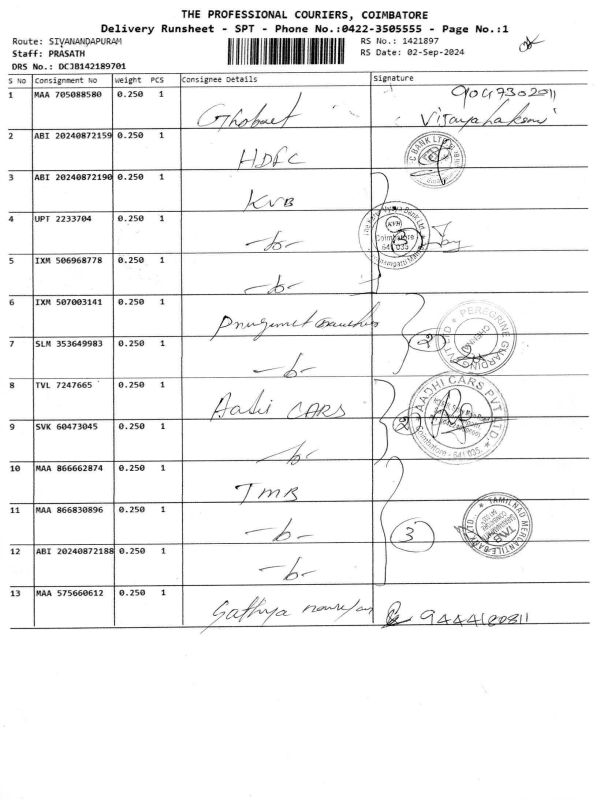 THE PROFESSIONAL COURIERS, COIMBATORE
Delivery Runsheet - SPT - Phone No.:0422-3505555 - Page No.:1
Route: SIVANANDAPURAM
Staff: PRASATH
DRS No.: DCJB142189701
RS No.: 1421897
RS Date: 02-Sep-2024
S No Consignment No Weight PCS Consignee Details Signature
1 MAA 705088580 0.250 1
Vijayalaksmi
2 ABI 20240872159 0.250 1 HDFC
3 ABI 20240872190 0.250 1 KVB
4 UPT 2233704 0.250 1
5 IXM 506968778 0.250 1
6 IXM 507003141 0.250 1
PEREGRINE GUARDING PVT LTD
CHENNAI
7 SLM 353649983 0.250 1 2
8 TVL 7247665 0.250 1 Aadhi CARS
AADHI CARS PVT LTD.
9 SVK 60473045 0.250 1 2
Coimbatore - 641 035.
10 MAA 866662874 0.250 1 TMB
11 MAA 866830896 0.250 1 3
TAMILNAD MERCANTILE BANK LTD.
12 ABI 20240872188 0.250 1
13 MAA 575660612 0.250 1 Sathya